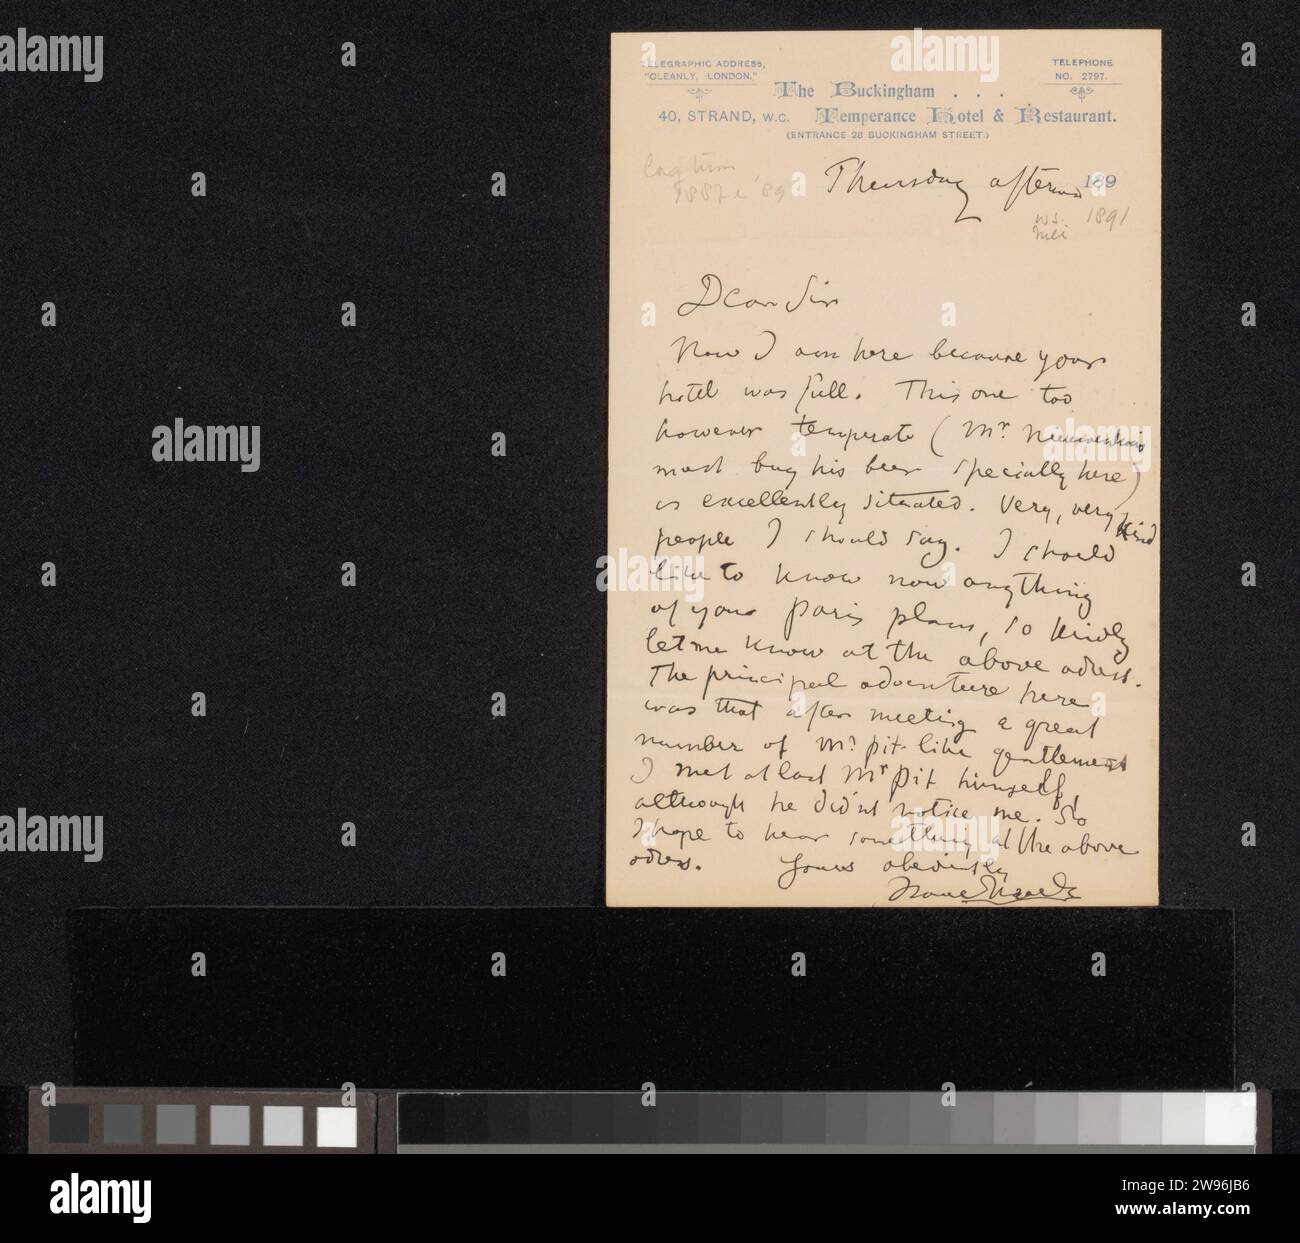 TELEGRAPHIC ADDRESS,
"CLEANLY, LONDON."
TELEPHONE
NO. 2797.
The Buckingham . . .
40, STRAND, W.C. Temperance Hotel & Restaurant.
(ENTRANCE 28 BUCKINGHAM STREET.)
1887 e '89
Thursday afternoon 189
1891
Dear Sir
Now I am here because your
hotel was full. This one too
however temperate (Mr.
must buy his beer specially here)
is excellently situated. Very, very kind
people I should say. I should
like to know now anything
of your Paris plans, so kindly
let me know at the above adress.
The principal adventure here
was that after meeting a great
number of Mr. Pit-like gentlemen
I met at last Mr Pit himself,
although he didn't notice me. So
I hope to hear something at the above
adress. Yours obediently
alamy
Image ID: 2W96JB6
www.alamy.com